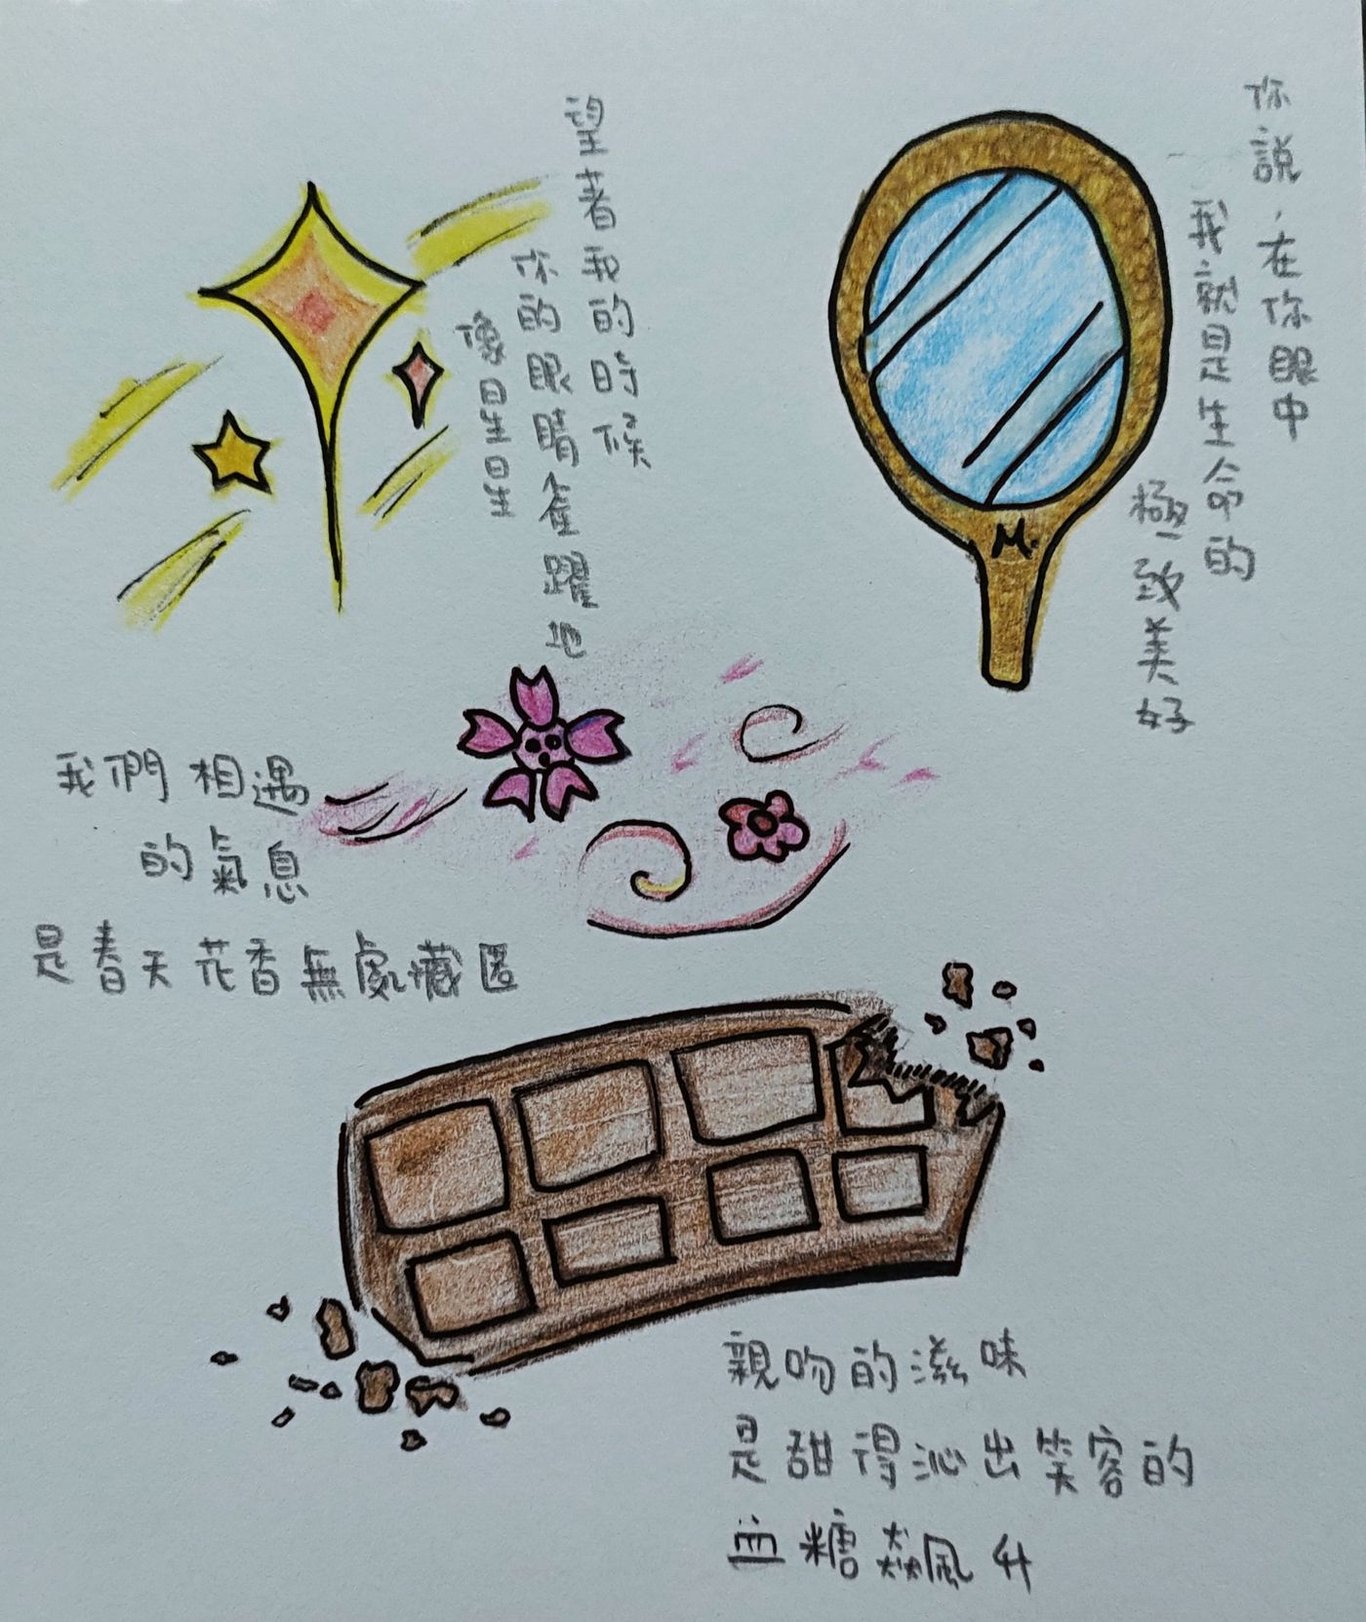 望著我的時候
你的眼睛雀躍地
像星星
你說,在你眼中
我就是生命的
極致美好
M.
我們相遇
的氣息
是春天花香無處藏匿
親吻的滋味
是甜得沁出笑容的
血糖飆升